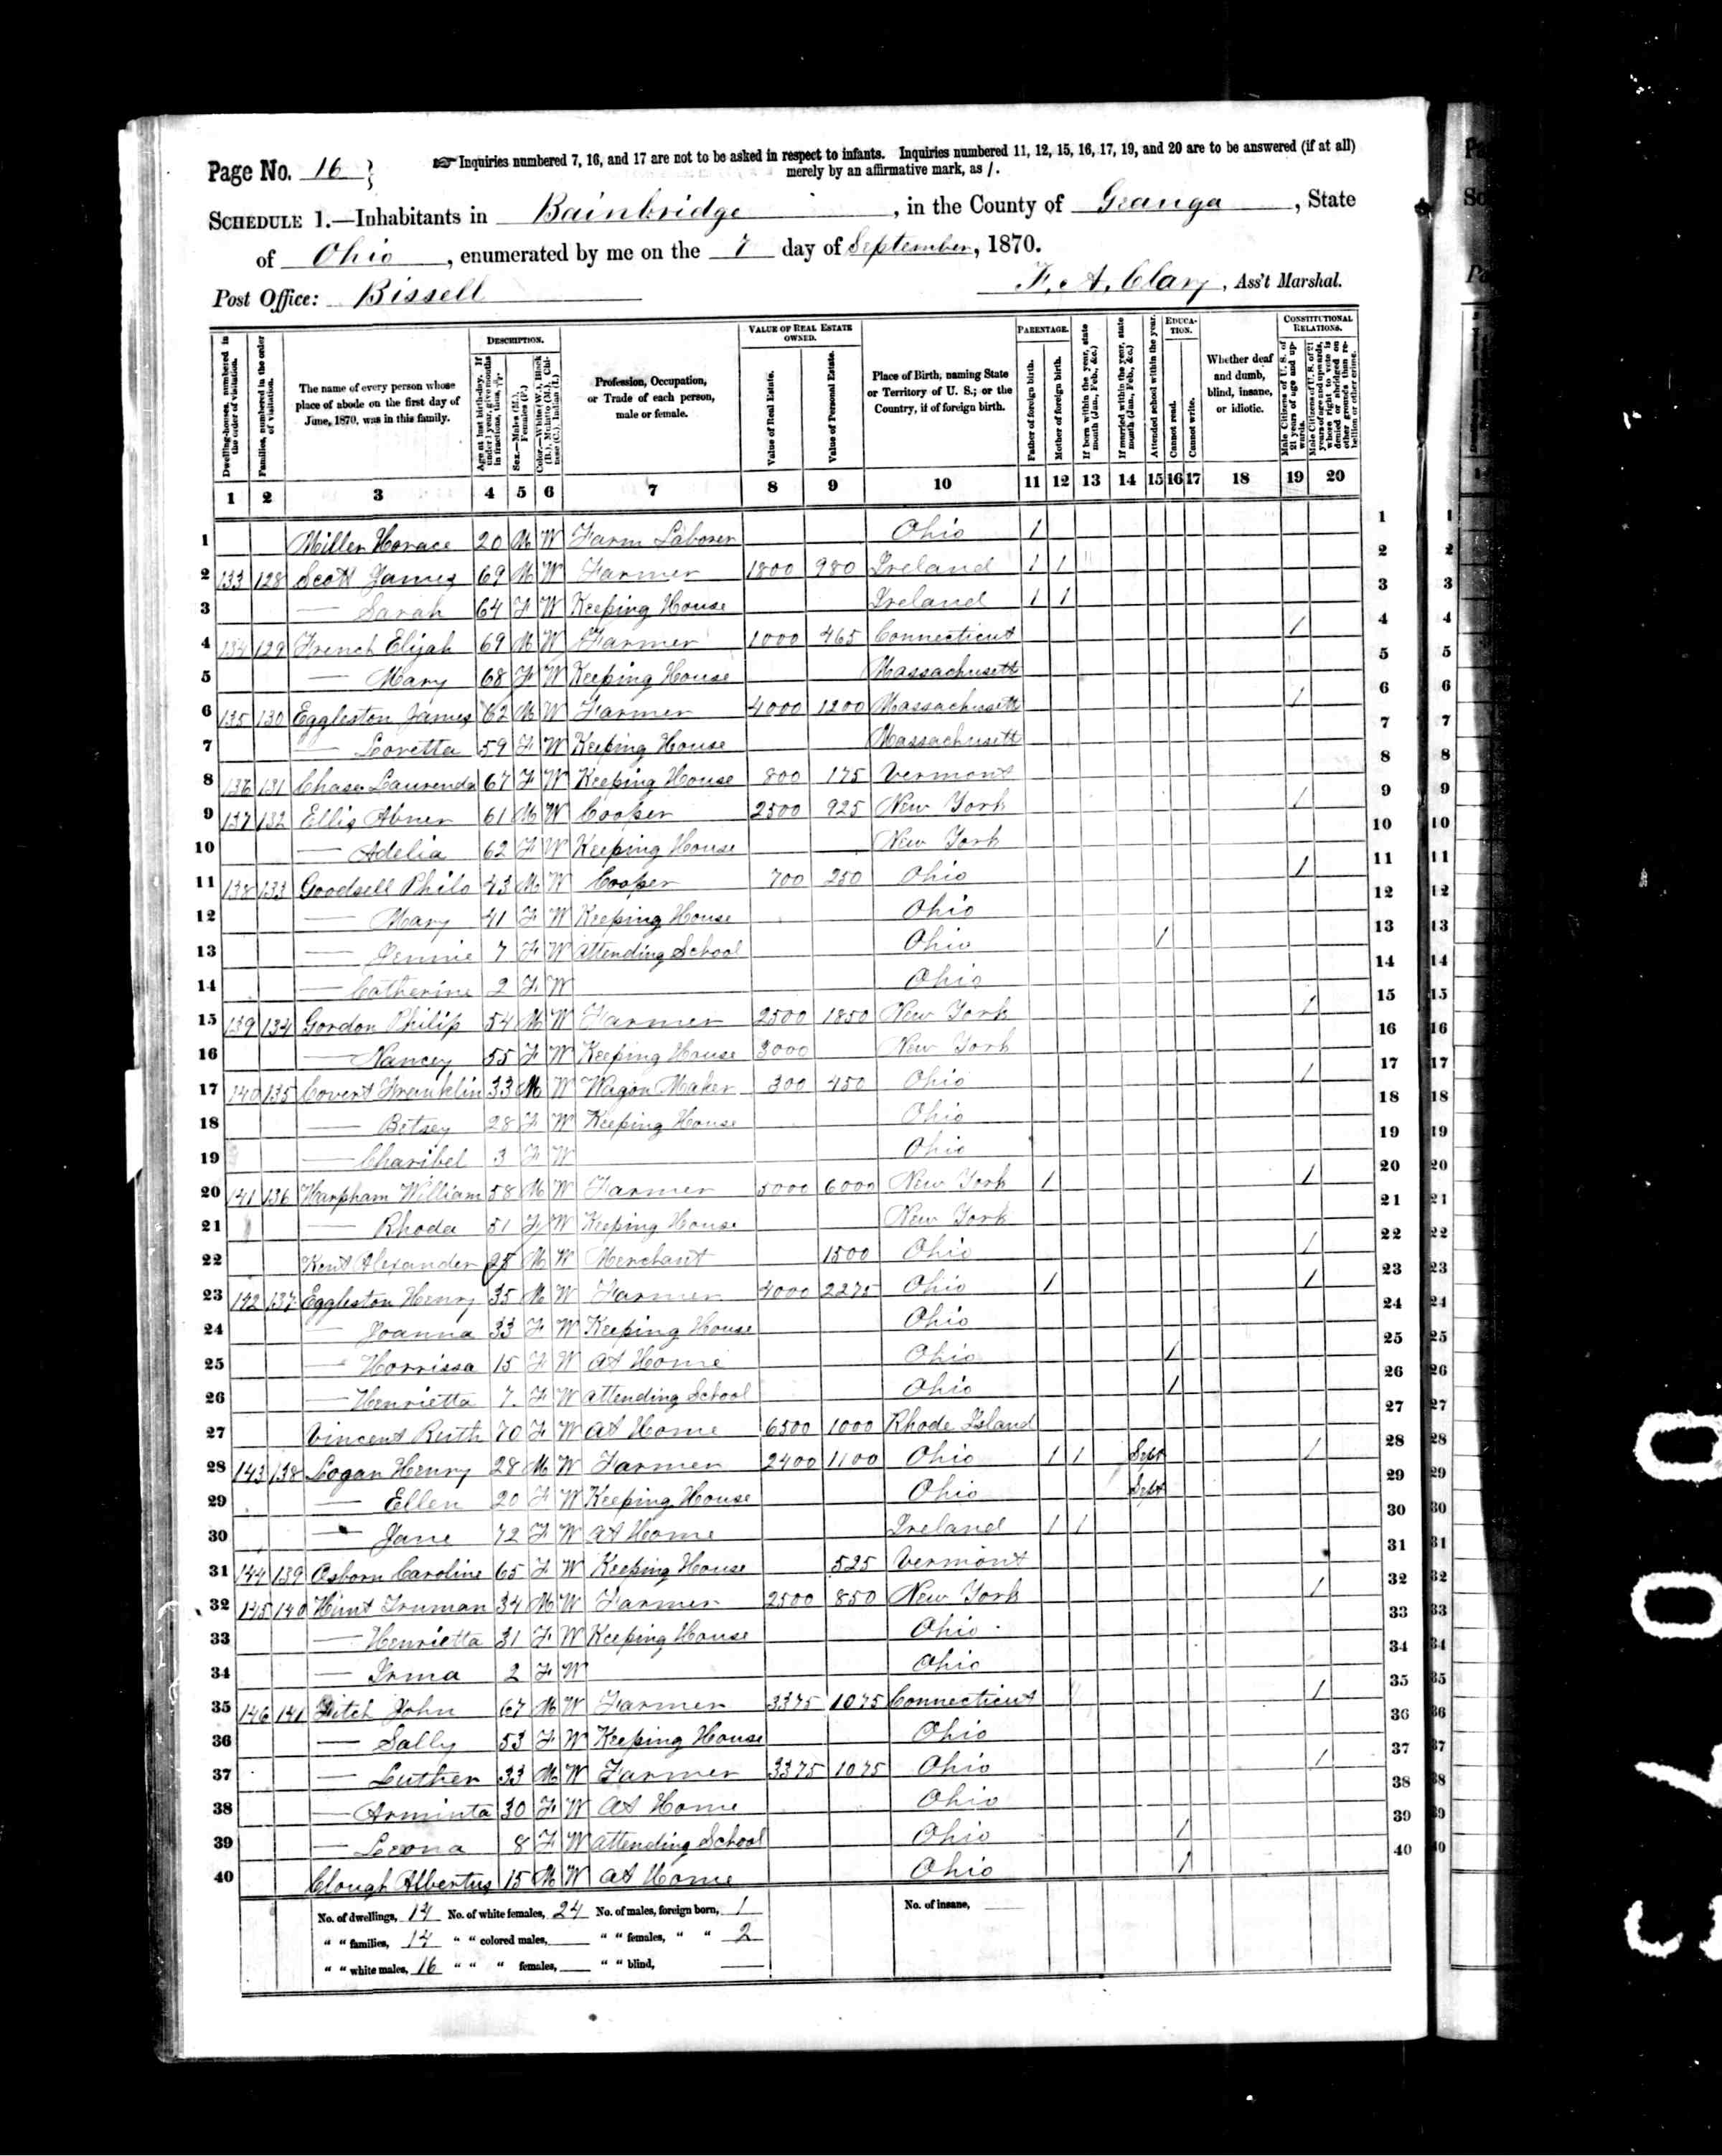 Page No. 16
Inquiries numbered 7, 16, and 17 are not to be asked in respect to infants. Inquiries numbered 11, 12, 15, 16, 17, 19, and 20 are to be answered (if at all)
merely by an affirmative mark, as /.
SCHEDULE 1.—Inhabitants in Bainbridge, in the County of Geauga, State
of Ohio, enumerated by me on the 7 day of September, 1870.
Post Office: Bissell
F. A. Clary, Ass't Marshal.
Dwelling-houses, numbered in the order of visitation.
Families, numbered in the order of visitation.
The name of every person whose place of abode on the first day of June, 1870, was in this family.
DESCRIPTION.
Age at last birth-day. If under 1 year, give months in fractions, thus,
Sex.—Males (M.), Females (F.)
Color.—White (W.), Black (B.), Mulatto (M.), Chinese (C.), Indian (I.)
Profession, Occupation, or Trade of each person, male or female.
VALUE OF REAL ESTATE OWNED.
Value of Real Estate.
Value of Personal Estate.
Place of Birth, naming State or Territory of U. S.; or the Country, if of foreign birth.
PARENTAGE.
Father of foreign birth.
Mother of foreign birth.
If born within the year, state month (Jan., Feb., &c.)
If married within the year, state month (Jan., Feb., &c.)
Attended school within the year.
EDUCATION.
Cannot read.
Cannot write.
Whether deaf and dumb, blind, insane, or idiotic.
CONSTITUTIONAL RELATIONS.
Male Citizens of U. S. of 21 years of age and upwards.
Male Citizens of U. S. of 21 years of age and upwards, whose right to vote is denied or abridged on other grounds than rebellion or other crime.
1 2 3 4 5 6 7 8 9 10 11 12 13 14 15 16 17 18 19 20
1 Miller Horace 20 M W Farm Laborer Ohio 1 1
2 133 128 Scott James 69 M W Farmer 1800 980 Ireland 1 1 2
3 — Sarah 64 F W Keeping House Ireland 1 1 3
4 134 129 French Elijah 69 M W Farmer 1000 465 Connecticut 1 4
5 — Mary 68 F W Keeping House Massachusetts 5
6 135 130 Eggleston James 62 M W Farmer 4000 1200 Massachusetts 1 6
7 — Loretta 59 F W Keeping House Massachusetts 7
8 136 131 Chase Laurenda 67 F W Keeping House 800 175 Vermont 8
9 137 132 Ellis Abner 61 M W Cooper 2500 925 New York 1 9
10 — Adelia 62 F W Keeping House New York 10
11 138 133 Goodsell Philo 43 M W Cooper 700 250 Ohio 1 11
12 — Mary 41 F W Keeping House Ohio 12
13 — Jennie 7 F W Attending School Ohio 1 13
14 — Catherine 2 F W Ohio 14
15 139 134 Gordon Philip 54 M W Farmer 2500 1850 New York 1 15
16 — Nancy 55 F W Keeping House 3000 New York 16
17 140 135 Covert Franklin 33 M W Wagon Maker 300 450 Ohio 1 17
18 — Betsey 28 F W Keeping House Ohio 18
19 — Charibel 3 F W Ohio 19
20 141 136 Harpham William 58 M W Farmer 5000 6000 New York 1 1 20
21 — Rhoda 51 F W Keeping House New York 21
22 Kent Alexander 25 M W Merchant 1500 Ohio 1 22
23 142 137 Eggleston Henry 35 M W Farmer 4000 2275 Ohio 1 1 23
24 — Joanna 33 F W Keeping House Ohio 24
25 — Horrissa 15 F W At Home Ohio 1 25
26 — Henrietta 7 F W Attending School Ohio 1 26
27 Vincent Ruth 70 F W At Home 6500 1000 Rhode Island 27
28 143 138 Logan Henry 28 M W Farmer 2400 1100 Ohio 1 1 Sept 1 28
29 — Ellen 20 F W Keeping House Ohio Sept 29
30 — Jane 72 F W At Home Ireland 1 1 30
31 144 139 Osborn Caroline 65 F W Keeping House 525 Vermont 31
32 145 140 Hunt Truman 34 M W Farmer 2500 850 New York 1 32
33 — Henrietta 31 F W Keeping House Ohio 33
34 — Irma 2 F W Ohio 34
35 146 141 Fitch John 67 M W Farmer 3375 1075 Connecticut 1 35
36 — Sally 53 F W Keeping House Ohio 36
37 — Luther 33 M W Farmer 3375 1075 Ohio 1 37
38 — Arminta 30 F W At Home Ohio 38
39 — Leona 8 F W Attending School Ohio 1 39
40 Clough Albertus 15 M W At Home Ohio 1 40
No. of dwellings, 14 No. of white females, 24 No. of males, foreign born, 1 No. of insane,
" " families, 14 " " colored males, " " females, " " 2
" " white males, 16 " " " females, " " blind,